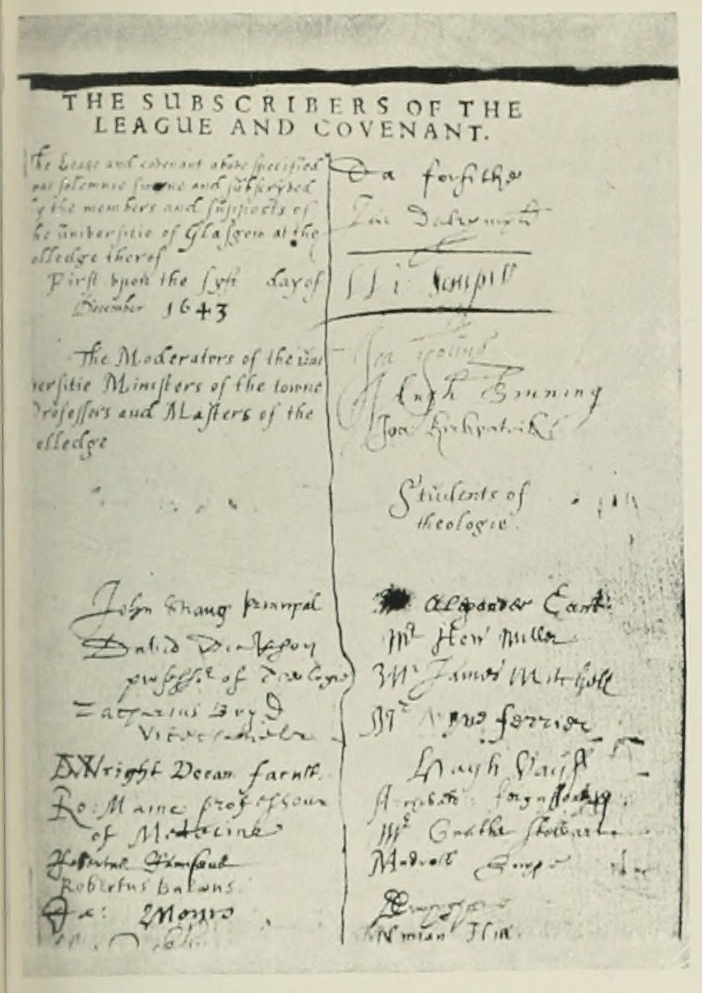 THE SUBSCRIBERS OF THE
LEAGUE AND COVENANT.
The Leage and covenant above specified
was solemnie sworne and subscryved
by the members and supposts of
he universitie of Glasgow at the
olledge therof
First upon the fyft day of
December 1643
The Moderators of the
versitie Ministers of the towne
Professors and Masters of the
olledge
John Strang principal
David Dickson
professr of Theologie
Zacharius Boyd
Vicechancler
D Wright Decan facult
Ro: Maine professour
of Medecine
Robertus
Robertus
Da: Monro
Da forsithe
Jn Dalrymple
Sempill
Jea young
Hugh Binning
Joa Kirkpatrick
Students of
theologie.
Alexander
Mr Hew Miller
Mr James Mitchell
Mr ferrier
Hugh
Archibald fergusson
Mr
Andrew
Ninian Hill